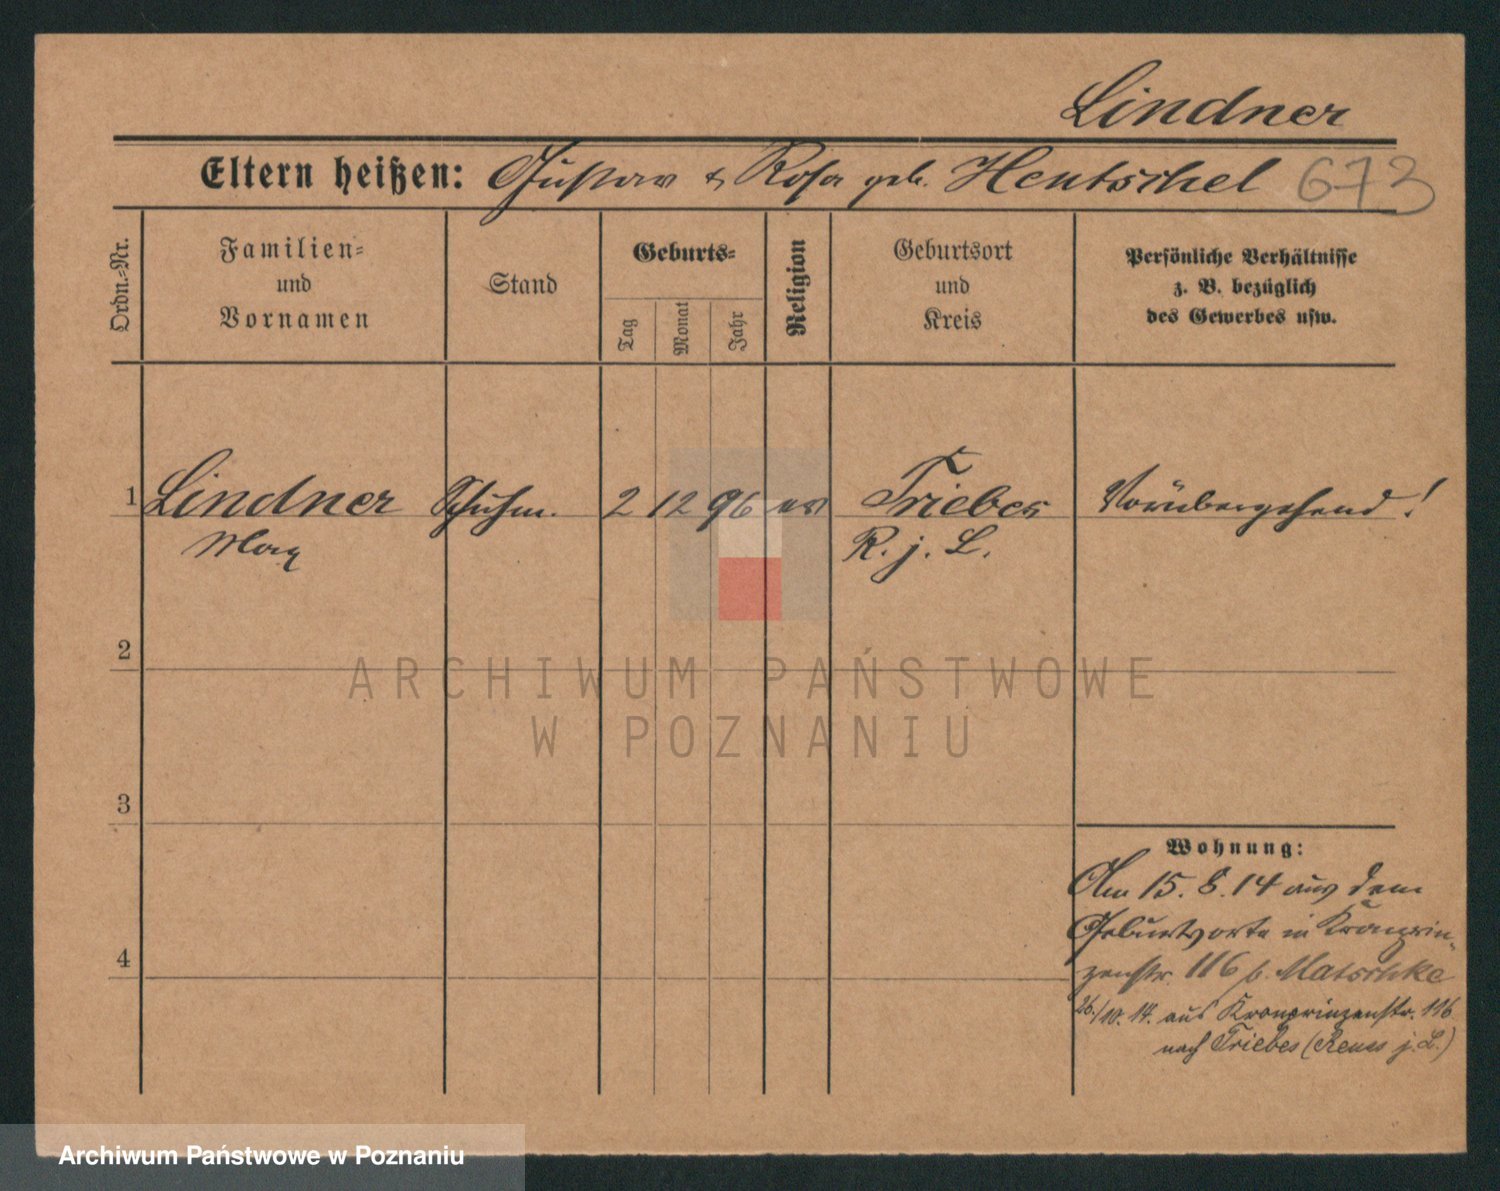 Lindner
Eltern heißen: Gustav & Rosa geb. Hentschel 673
Ordn.-Nr.
Familien- und Vornamen
Stand
Geburts-
Tag
Monat
Jahr
Religion
Geburtsort und Kreis
Persönliche Verhältnisse
z. B. bezüglich
des Gewerbes usw.
1 Lindner Schuhm. 2 12 96 ev Triebes Vorübergehend!
Max R. j. L.
2
ARCHIWUM PAŃSTWOWE
W POZNANIU
3
Wohnung:
Am 15. 8. 14 aus dem
Geburtsorte in Kronprin-
4
zenstr. 116 b. Matschke
26./10. 14. aus Kronprinzenstr. 116
nach Triebes (Reuss j. L.)
Archiwum Państwowe w Poznaniu